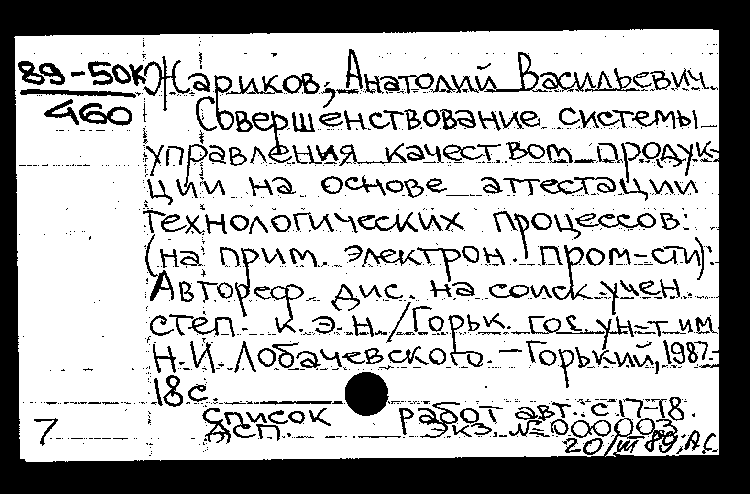 89-50К
460
Жариков, Анатолий Васильевич
Совершенствование системы
управления качеством продук-
ции на основе аттестации
технологических процессов:
(на прим. электрон. пром-сти):
Автореф. дис. на соиск. учен.
степ. к.э.н./Горьк. гос. ун-т им.
Н.И. Лобачевского. – Горький, 1987.–
18с.
список работ авт.: с.17-18.
ДСП. Экз. № 000003
7
20/III 89, А.С.